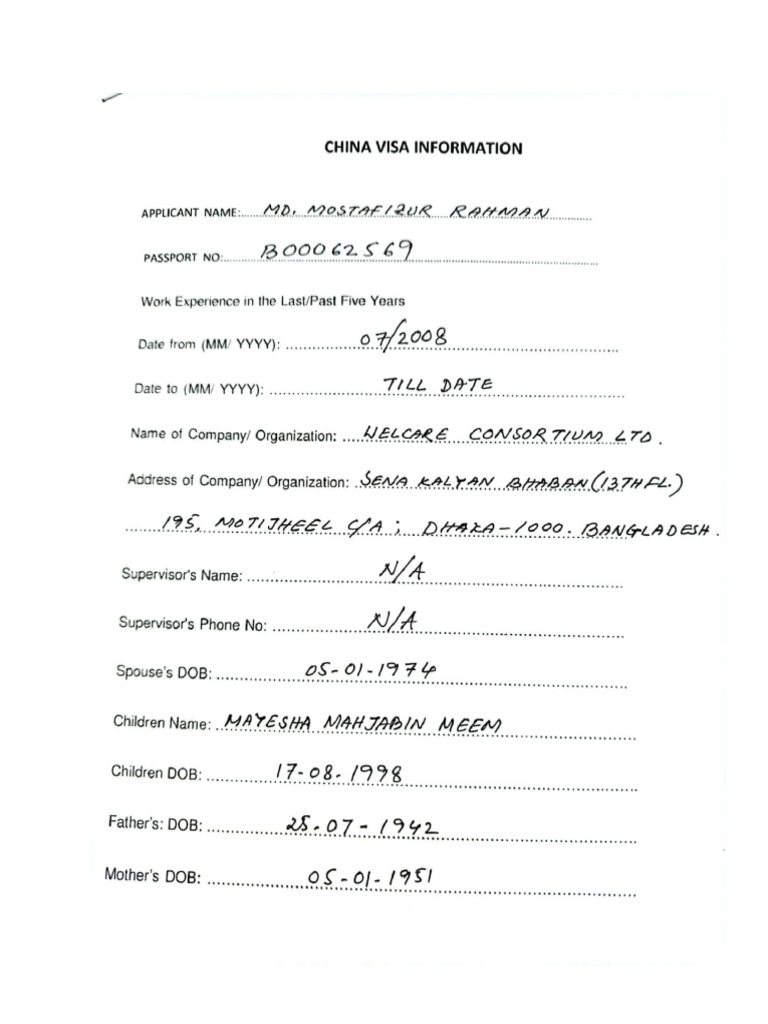 CHINA VISA INFORMATION
APPLICANT NAME: MD. MOSTAFIZUR RAHMAN
PASSPORT NO: B00062569
Work Experience in the Last/Past Five Years
Date from (MM/ YYYY): 07/2008
Date to (MM/ YYYY): TILL DATE
Name of Company/ Organization: WELCARE CONSORTIUM LTD.
Address of Company/ Organization: SENA KALYAN BHABAN (13TH FL.)
195, MOTIJHEEL C/A; DHAKA-1000. BANGLADESH.
Supervisor's Name: N/A
Supervisor's Phone No: N/A
Spouse's DOB: 05-01-1974
Children Name: MAYESHA MAHJABIN MEEM
Children DOB: 17-08-1998
Father's: DOB: 25-07-1942
Mother's DOB: 05-01-1951